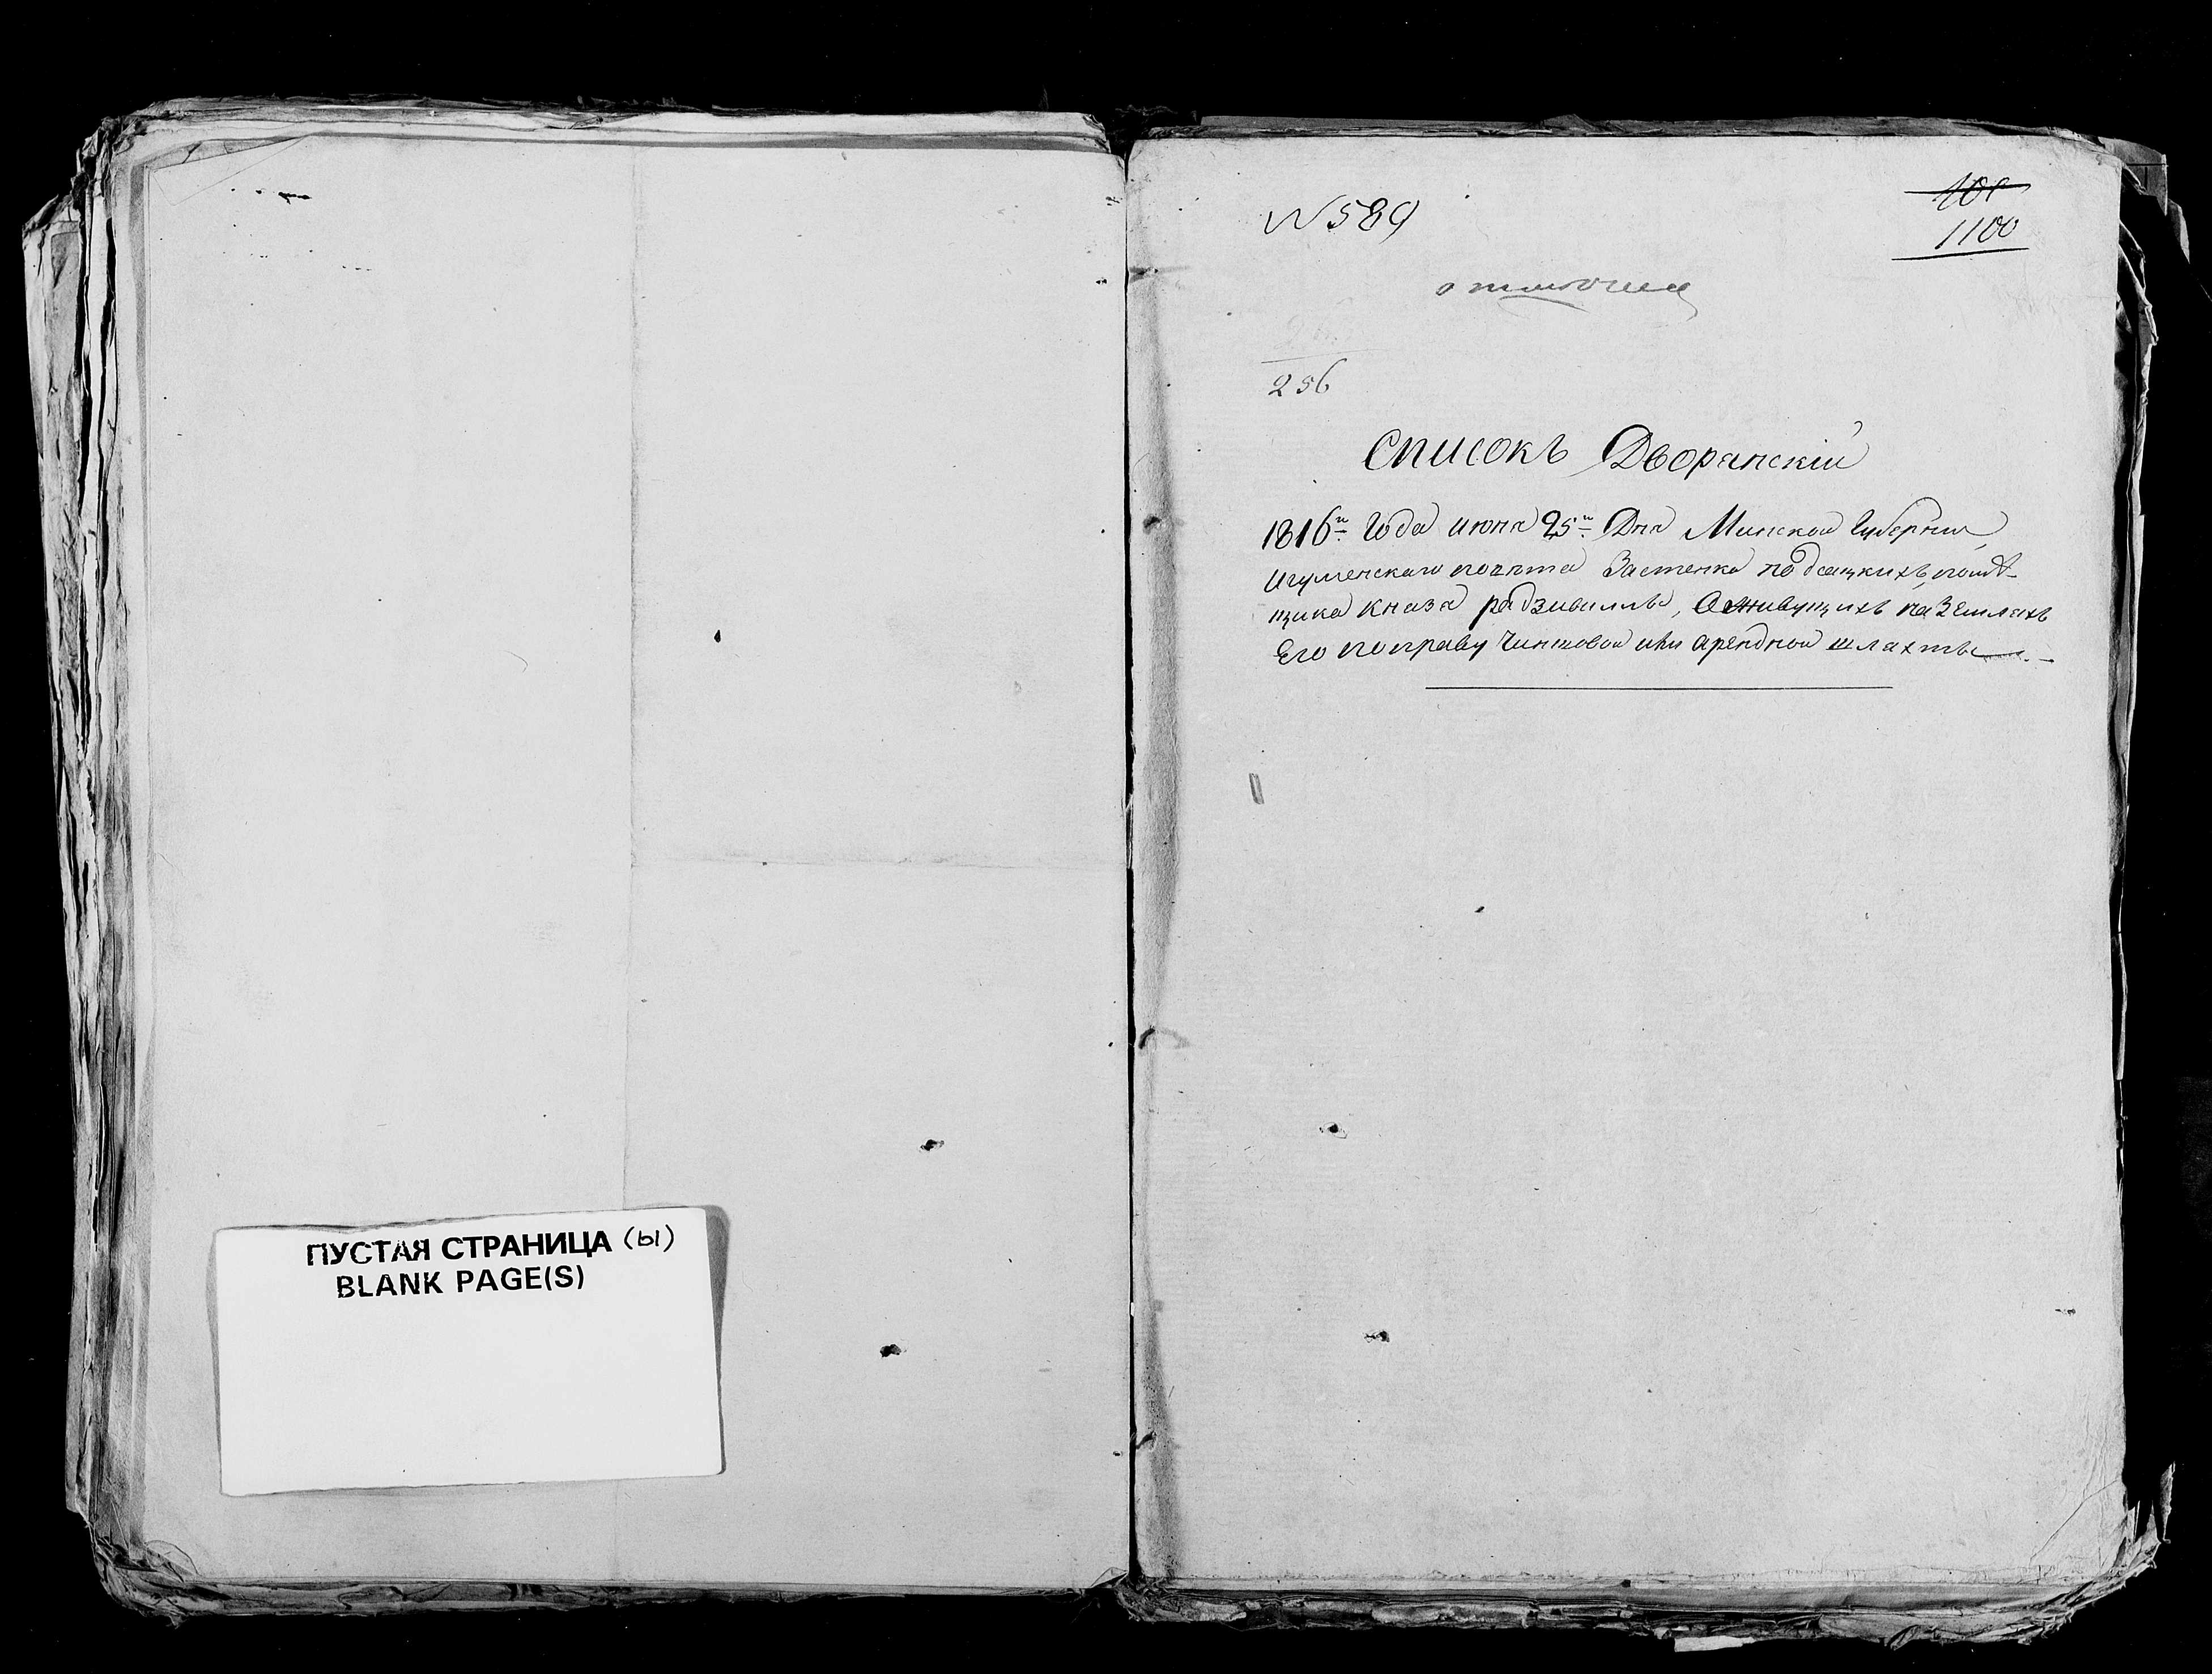 ПУСТАЯ СТРАНИЦА (ы)
BLANK PAGE(S)
N 589
1100
256
Списокъ Дворянскій
1816го Года июня 25го Дня Минской Губернии
Игуменского повѣта Застенка подсацкихъ помѣ-
щика князя радзивилла, О живущихъ на Земляхъ
Его по праву Чиншовой или арендной шляхты